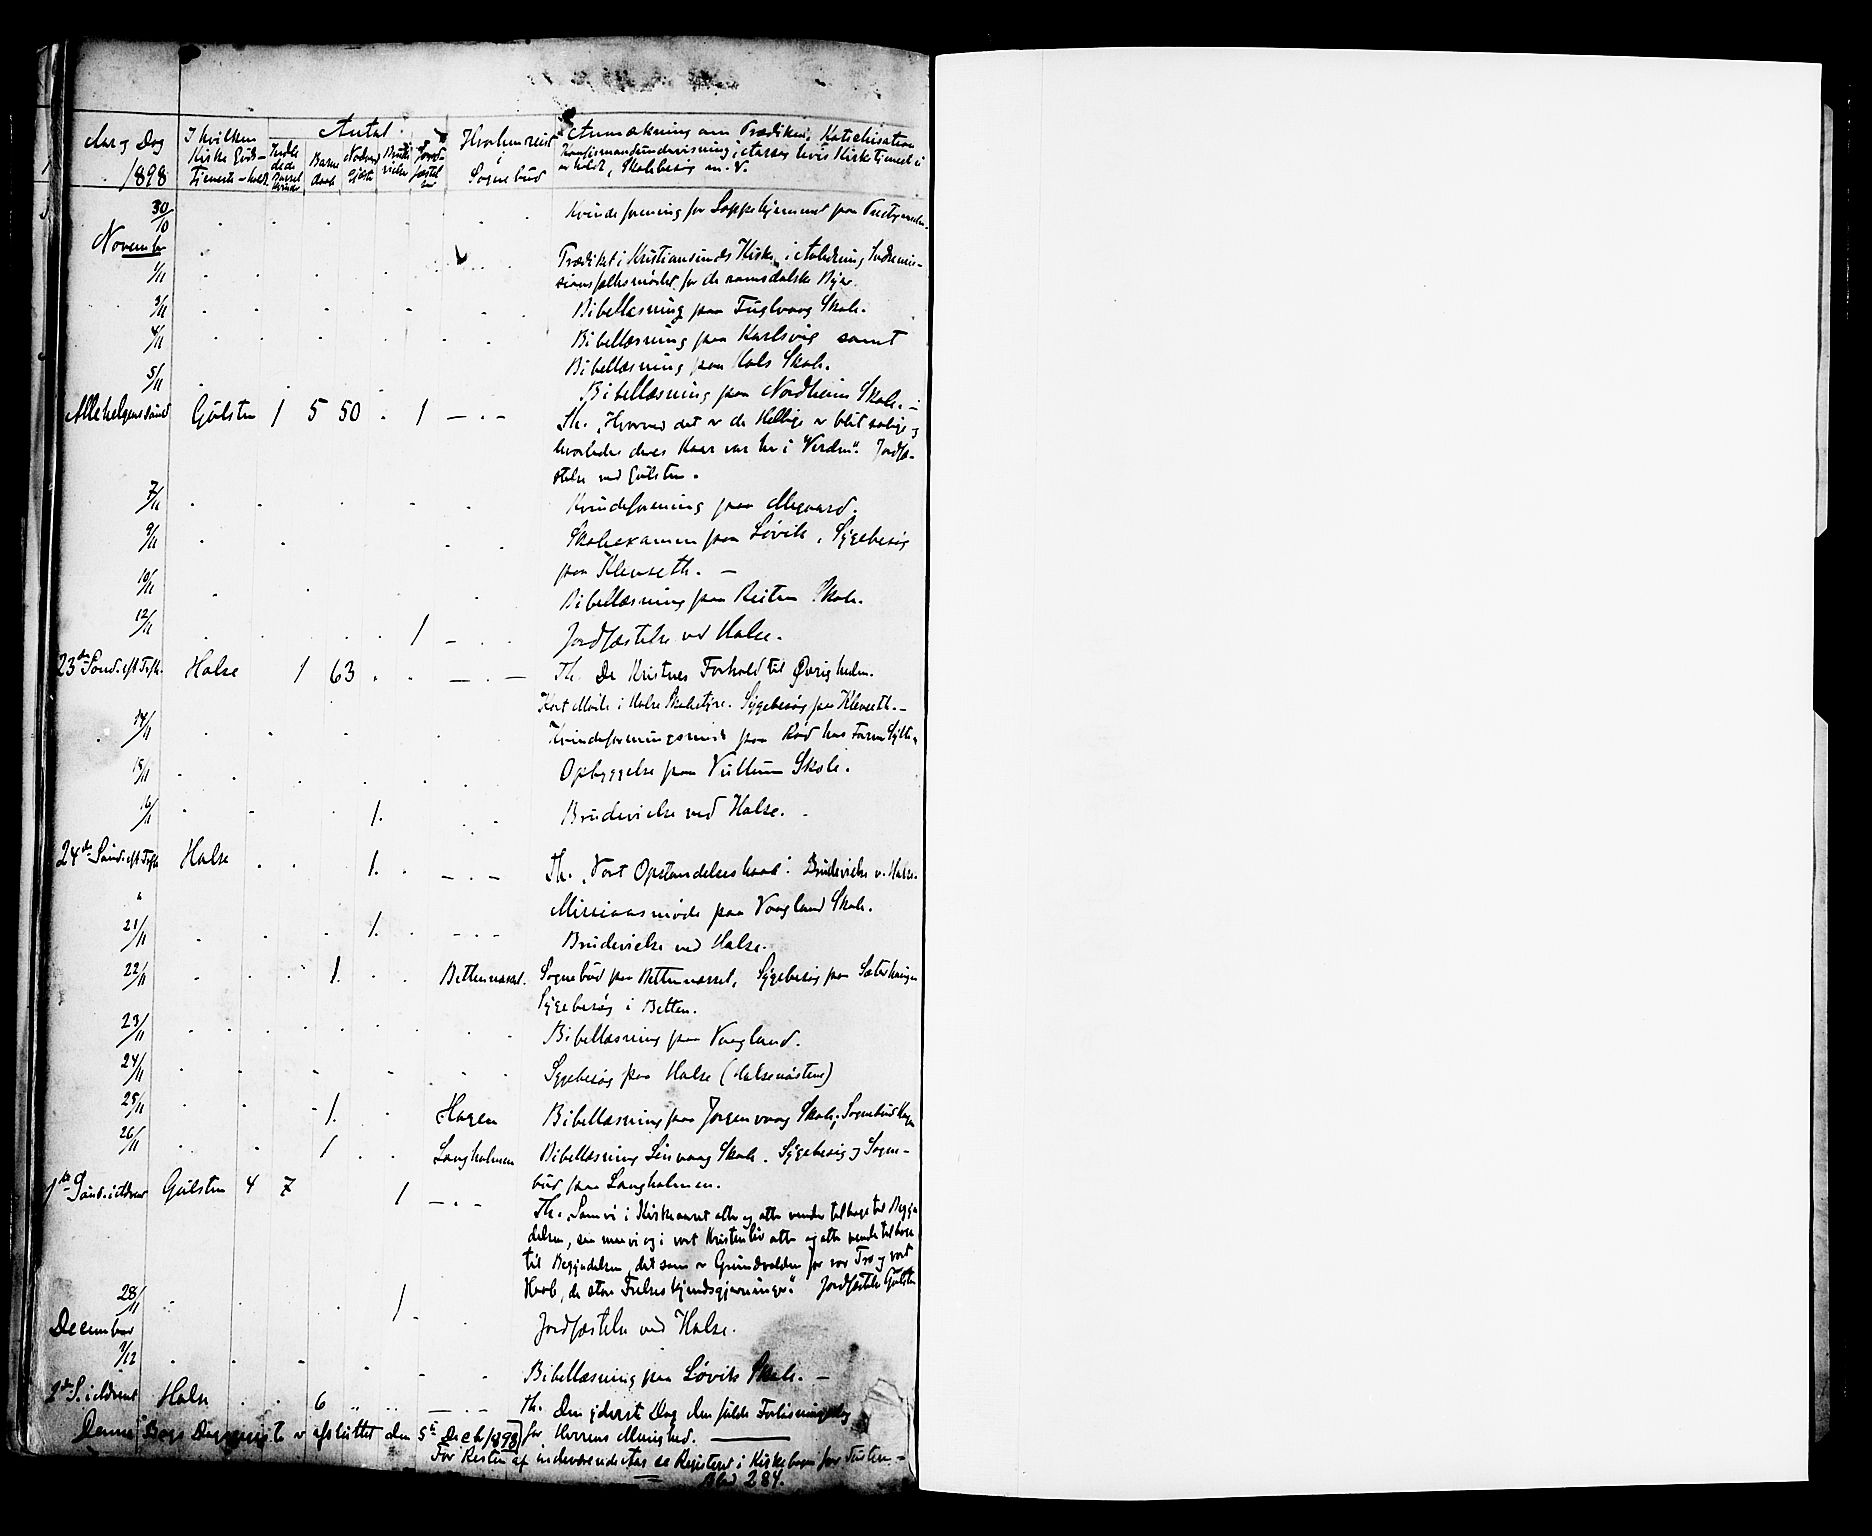 Aar og Dag 1898 I hvilken Kirke Guds-Tjeneste holdt Antal Barne daab Nadverd Gjæster Brude vielser Hvorhen reist i Sognebud Anmærkning om Prædiken, Katechisation
Konfirmandundervisning
30/10 Kvindeforening for
November
1/11 Prædiket i Kristiansunds Kirke i Anledning Indremis-
sionsfællesmødet for de romsdalske Byer.
3/11 Bibellæsning paa Fuglvaag Skole.
4/11 Bibellæsning paa Karlsvig samt
Bibellæsning paa Hals Skole.
5/11 Bibellæsning paa Nordheim Skole. –
Allehelgenssønd Gulsten 1 5 50 . 1 – . – Th. "Hvorved det er de Hellige er blit salige og
hvorledes deres Kaar var her i Verden". Jordfæ-
stelse ved Gulsten.
7/11 Kvindeforening paa Megaard.
9/11 Skoleexamen paa Løvik. Sygebesøg
paa Klevseth. –
10/11 Bibellæsning paa Reiten Skole.
12/11 1 – Jordfæstelse ved Halse.
23de Sønd. eft. Trft. Halse 1 63 . . – . – Th. De Kristnes Forhold til Øvrigheden.
Kort Møde i Halse Skolestyre. Sygebesøg paa Klevseth. –
14/11 Kvindeforeningsmøde paa Rød hos
15/11 Opbyggelse paa Vullum Skole.
16/11 1. Brudevielse ved Halse.
24de Sønd. eft Trft Halse . . 1. . – . – Th. "Vort Opstandelseshaab". Brudevielse v. Halse.
" Missionsmøde paa Vaagland Skole.
21/11 1. . – . – Brudevielse ved Halse.
22/11 1. Bettennæsset. Sognebud paa Bettennæsset, Sygebesøg paa
Sygebesøg i Betten.
23/11 Bibellæsning paa Vaagland.
24/11 Sygebesøg paa Halse (Halsenøsterne)
25/11 1. Hagen Bibellæsning paa Jørgenvaag Skole, Sognebud Hagen
26/11 1 Langholmen Bibellæsning Linvaag Skole. Sygebesøg og Sogne-
bud paa Langholmen.
1ste Sønd. i Advent Gulsten 4 7 1 – . – Th. "Som vi i Kirkeaaret atter og atter vender tilbage til Begyn
delsen, saa maa vi og i vort Kristenliv atter og atter vende tilbage
til Begyndelsen, det som er Grundvolden for vor Tro og vort
Haab, de store Frelses kjendsgjerninger." Jordfæstelse Gulsten
28/11 1 Jordfæstelse ved Halse.
December
2/12 Bibellæsning paa Løvik Skole. –
2den S. i Advent Halse 6 – . – Th. Den yderst Dag den fulde Forløsningsdag
for Herrens Menighed.
Denne Bogs Dagregister er afsluttet den 5te Dec 1898
For Resten af indeværende Aar se Registeret i Kirkebogen for Tusten –
Blad 284.